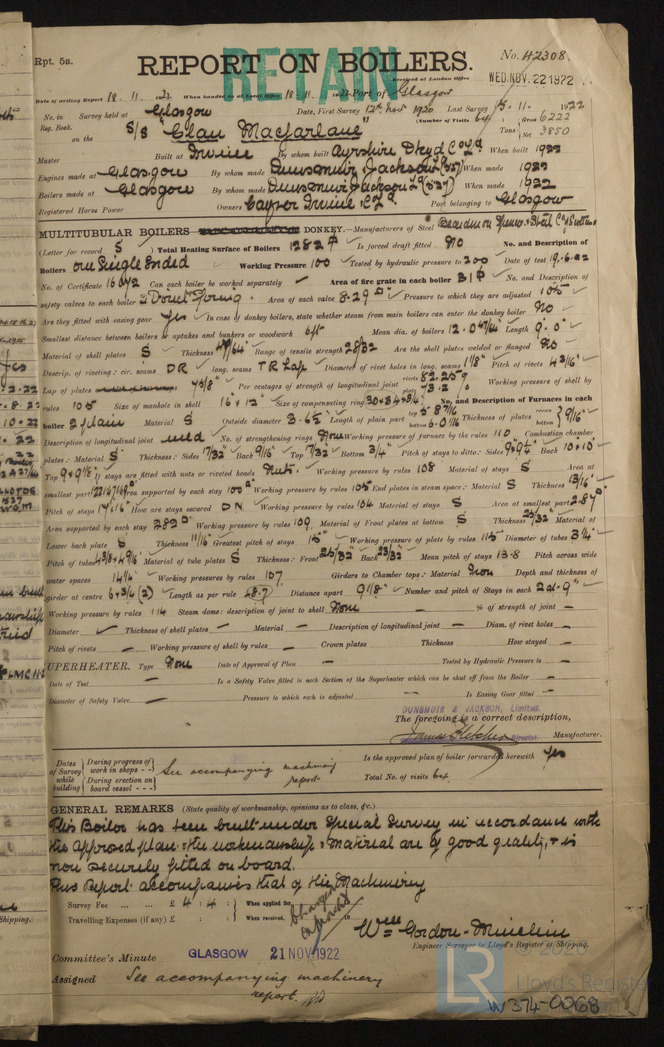 Rpt. 5a.
RETAIN
REPORT ON BOILERS.
No. 42308
Received at London Office WED. NOV. 22 1922
Date of writing Report 18.11.1922 When handed in at Local Office 18.11.1922 Port of Glasgow
No. in Survey held at Glasgow Date, First Survey 12th Nov 1920 Last Survey 15.11.1922
Reg. Book. (Number of Visits 64) Gross 6222
on the S/S "Clan Macfarlane" Tons Net 3850
Master Built at Irvine By whom built Ayrshire Dkyd Co Ld When built 1922
Engines made at Glasgow By whom made Dunsmuir & Jackson Ld (527) When made 1922
Boilers made at Glasgow By whom made Dunsmuir & Jackson Ld (527) When made 1922
Registered Horse Power Owners Cayzer Irvine & Co Ld Port belonging to Glasgow
MULTITUBULAR BOILERS DONKEY.—Manufacturers of Steel
(Letter for record S) Total Heating Surface of Boilers 1282 Is forced draft fitted No No. and Description of
Boilers one Single Ended Working Pressure 100 Tested by hydraulic pressure to 200 Date of test 19.6.22
No. of Certificate 16042 Can each boiler be worked separately – Area of fire grate in each boiler 31 No. and Description of
safety valves to each boiler 2 Direct Spring. Area of each valve 8.29 Pressure to which they are adjusted 105
Are they fitted with easing gear Yes In case of donkey boilers, state whether steam from main boilers can enter the donkey boiler No
Smallest distance between boilers or uptakes and bunkers or woodwork 6ft Mean dia. of boilers 12.0 47/64 Length 9'.0"
Material of shell plates S Thickness 47/64 Range of tensile strength 28/32 Are the shell plates welded or flanged No
Descrip. of riveting: cir. seams DR long. seams TR Lap Diameter of rivet holes in long. seams 1 1/8" Pitch of rivets 4 3/16"
Lap of plates 7 5/8" Per centages of strength of longitudinal joint rivets 82.25 plate 73.2 Working pressure of shell by
rules 105 Size of manhole in shell 16" x 12" Size of compensating ring No. and Description of Furnaces in each
boiler 2 plain Material S Outside diameter 3'.6 1/2" Length of plain part top 5'.8 7/16 bottom 6'.0 Thickness of plates crown bottom 9/16"
Description of longitudinal joint weld No. of strengthening rings None Working pressure of furnace by the rules 110 Combustion chamber
plates: Material S Thickness: Sides 17/32 Back 9/16" Top 17/32 Bottom 3/4 Pitch of stays to ditto: Sides 9"x9 1/2 Back 10"x10"
Top 9x9 1/2 If stays are fitted with nuts or riveted heads Nuts. Working pressure by rules 108 Material of stays S Area at
smallest part Area supported by each stay 100 Working pressure by rules 105 End plates in steam space: Material S Thickness 13/16"
Pitch of stays How are stays secured DN Working pressure by rules 104 Material of stays S Area at smallest part 2.87
Area supported by each stay 282 Working pressure by rules 109 Material of Front plates at bottom S Thickness 25/32" Material of
Lower back plate S Thickness 11/16" Greatest pitch of stays 15" Working pressure of plate by rules 115 Diameter of tubes 3 1/4"
Pitch of tubes Material of tube plates S Thickness: Front 25/32 Back 23/32 Mean pitch of stays 13.8 Pitch across wide
water spaces 14 1/4" Working pressures by rules 107 Girders to Chamber tops: Material Iron Depth and thickness of
girder at centre 6x3/4 (2) Length as per rule Distance apart 9 1/8" Number and pitch of Stays in each 2 at 9"
Working pressure by rules 114 Steam dome: description of joint to shell None % of strength of joint –
Diameter – Thickness of shell plates – Material – Description of longitudinal joint – Diam. of rivet holes –
Pitch of rivets – Working pressure of shell by rules – Crown plates Thickness How stayed –
UPERHEATER. Type None Date of Approval of Plan – Tested by Hydraulic Pressure to –
Date of Test – Is a Safety Valve fitted to each Section of the Superheater which can be shut off from the Boiler –
Diameter of Safety Valve – Pressure to which each is adjusted – Is Easing Gear fitted –
DUNSMUIR & JACKSON, Limited.
The foregoing is a correct description,
James Fletcher Director. Manufacturer.
Dates of Survey while building
During progress of work in shops - -
During erection on board vessel - - -
See accompanying machinery report
Is the approved plan of boiler forwarded herewith Yes
Total No. of visits 64
GENERAL REMARKS (State quality of workmanship, opinions as to class, &c.)
This Boiler has been built under Special Survey in accordance with
the approved plan. The workmanship & material are of good quality, & is
now securely fitted on board.
This Report accompanies that of the Machinery
Survey Fee ... ... £ 4 : 4 : When applied for,
Travelling Expenses (if any) £ : : When received, 19
Wm Gordon-Minchin
Engineer Surveyor to Lloyd's Register of Shipping.
Committee's Minute GLASGOW 21 NOV 1922
Assigned See accompanying machinery
report.
© 2020
Lloyd's Register
LR
W374-0068